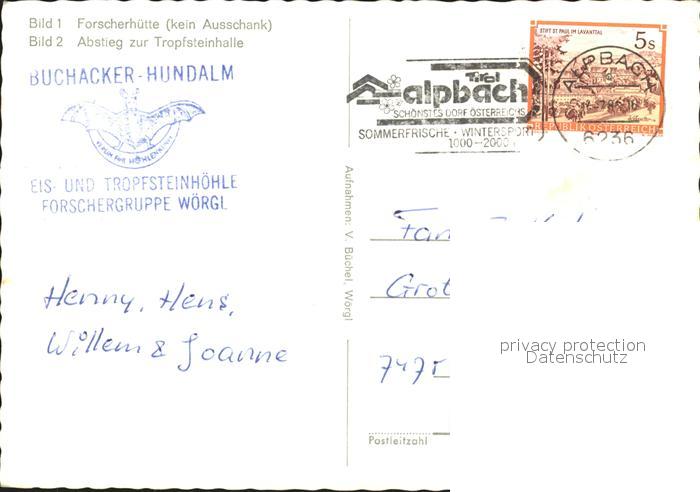 Bild 1 Forscherhütte (kein Ausschank)
Bild 2 Abstieg zur Tropfsteinhalle
BUCHACKER-HUNDALM
VEREIN FÜR HÖHLENKUNDE
EIS- UND TROPFSTEINHÖHLE
FORSCHERGRUPPE WÖRGL
Henny, Hens,
Willem & Joanne
Aufnahmen: V. Büchel, Wörgl
Tirol
alpbach
SCHÖNSTES DORF ÖSTERREICHS
SOMMERFRISCHE · WINTERSPORT
1000-2000
STIFT ST. PAUL IM LAVANTTAL
5s
REPUBLIK ÖSTERREICH
ALPBACH
6236
Fam
Grot
7475
Postleitzahl
privacy protection
Datenschutz